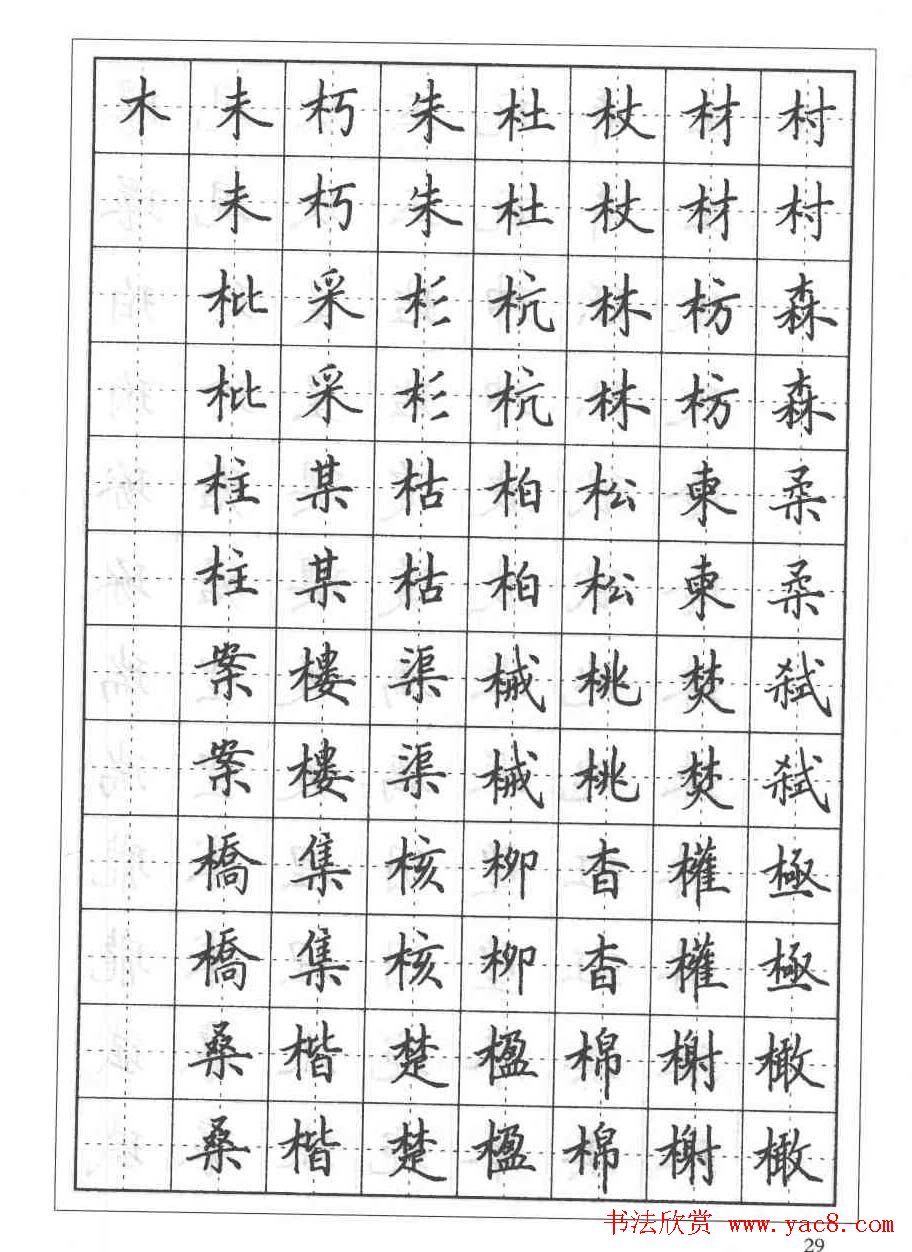 木 未 朽 朱 杜 杖 材 村
未 朽 朱 杜 杖 材 村
枇 采 杉 杭 林 枋 森
枇 采 杉 杭 林 枋 森
柱 某 枯 柏 松 柬 柔
柱 某 枯 柏 松 柬 柔
案 楼 渠 械 桃 焚 弑
案 楼 渠 械 桃 焚 弑
橋 集 核 柳 杳 權 極
橋 集 核 柳 杳 權 極
桑 楷 楚 楹 棉 榭 橄
桑 楷 楚 楹 棉 榭 橄
书法欣赏 www.yac8.com
29